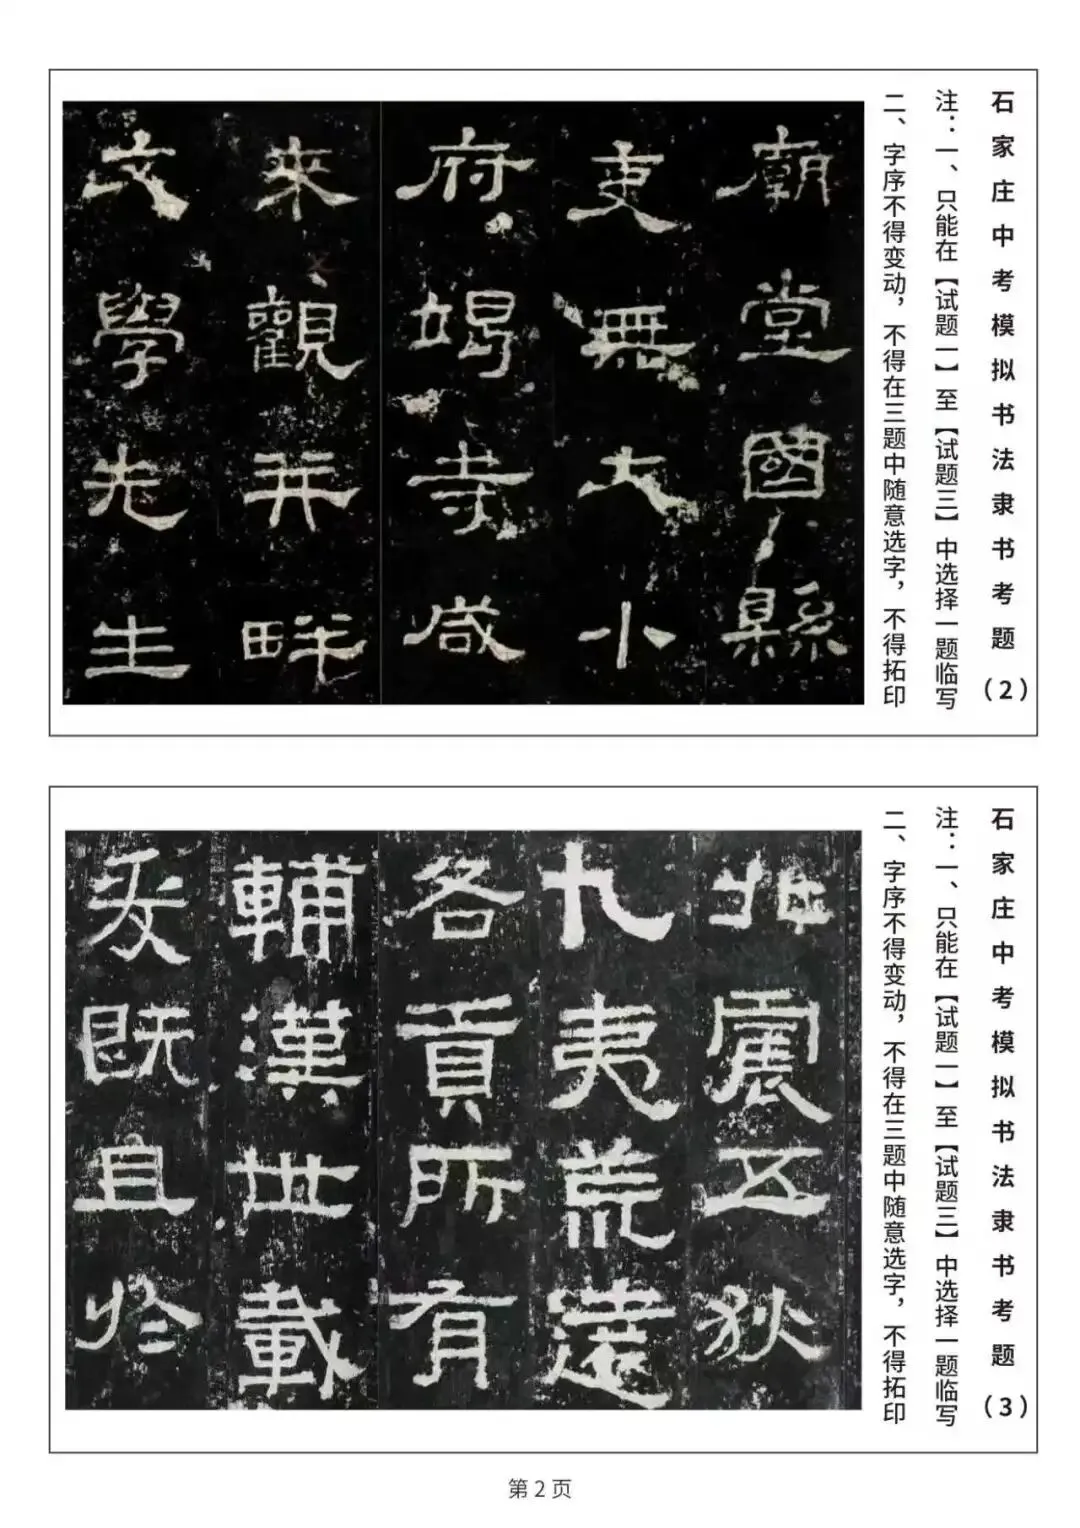 石家庄中考模拟书法隶书考题(2)
注：一、只能在【试题一】至【试题三】中选择一题临写
二、字序不得变动，不得在三题中随意选字，不得拓印
廟堂國縣
吏無大小
府竭寺咸
來觀并畔
文學先生
石家庄中考模拟书法隶书考题(3)
注：一、只能在【试题一】至【试题三】中选择一题临写
二、字序不得变动，不得在三题中随意选字，不得拓印
北震五狄
九夷荒遠
各貢所有
輔漢世載
爰既且於
第 2 页